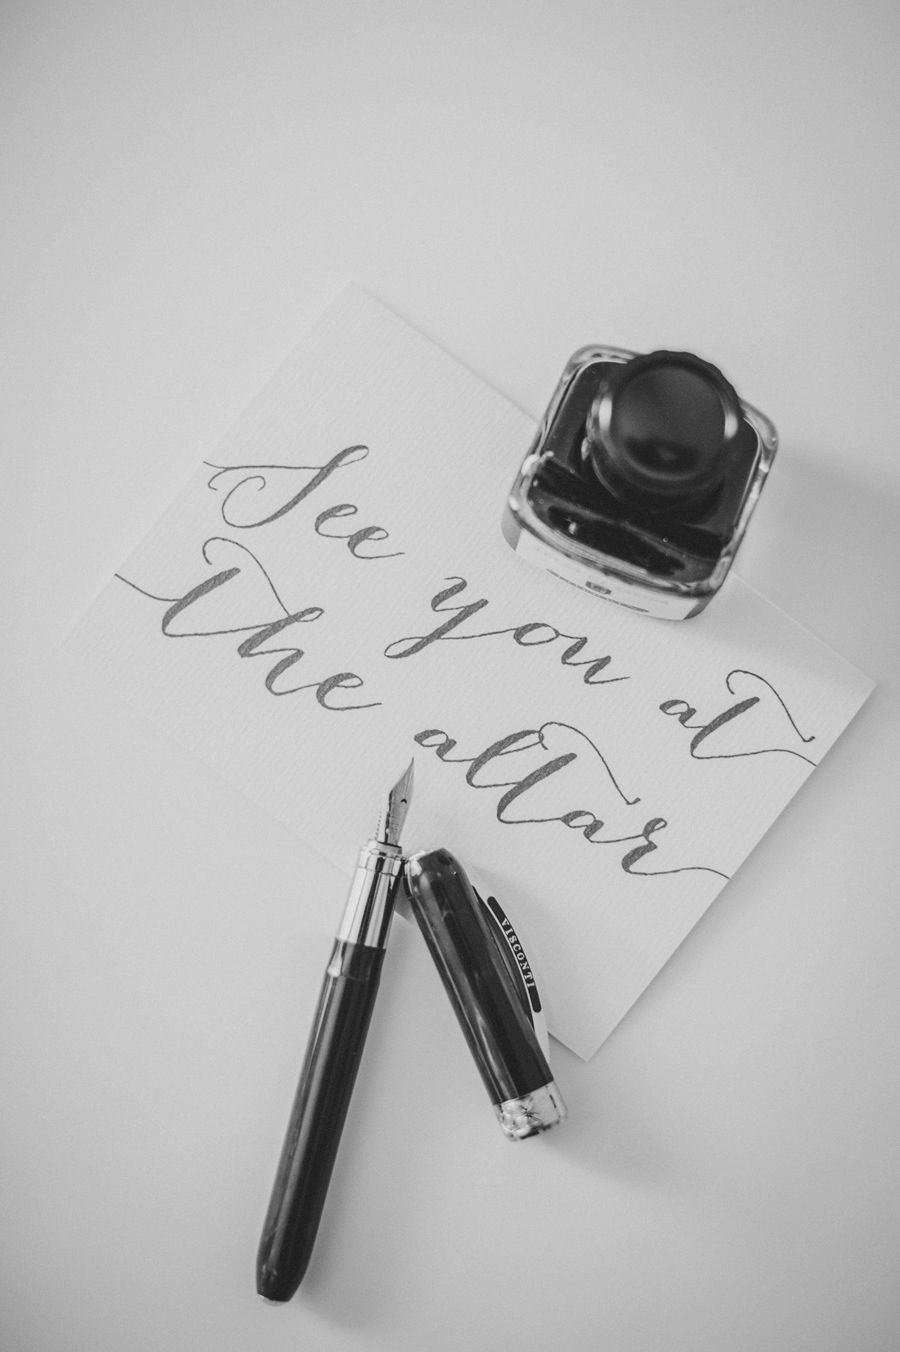 See you at
the altar
VISCONTI